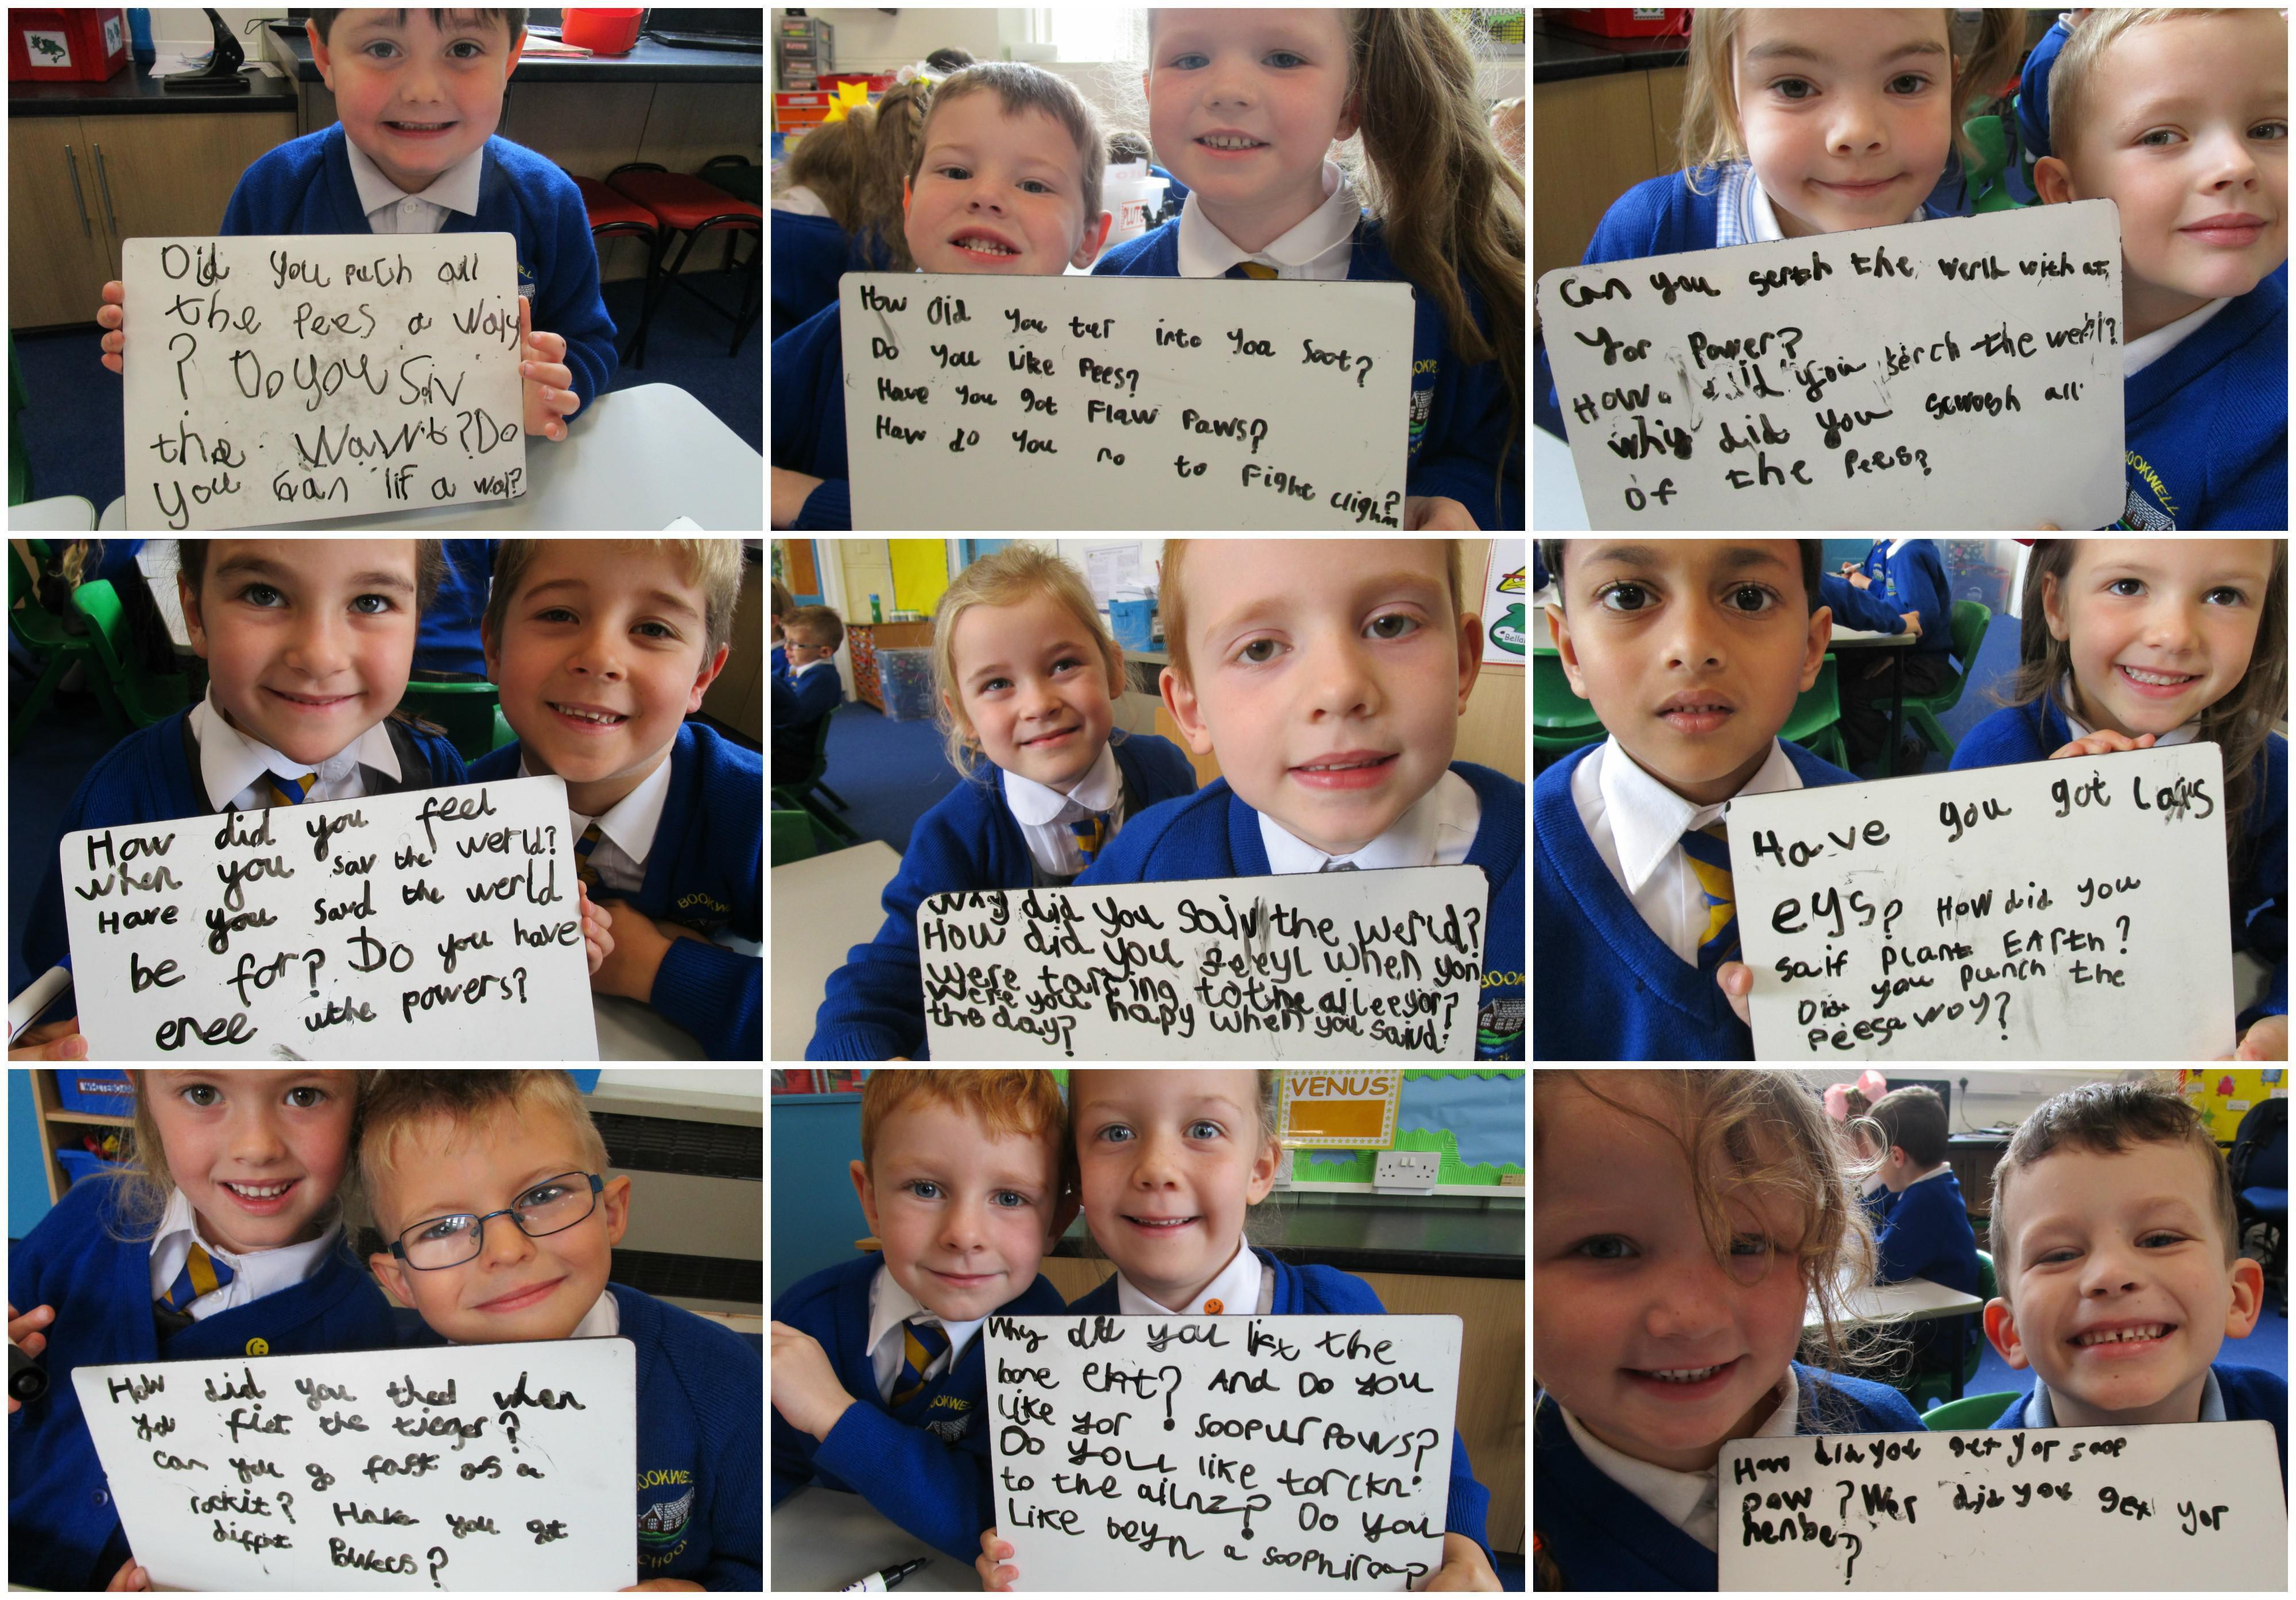 Did you puch all
the Pees a waiy
? Do you Saiv
the
Do
you can lif a
How did you tur into you Soot?
Do you like Pees?
Have you got Flaw Paws?
How do you no to Fight
Can you the with
yor Power?
How did you serch the
why did you all
of the Pees?
How did you feel
when you sav the werld?
Have you savd the werld
be for? Do you have
enee uthe powers?
BOOKW
Why did you Saiv the werld?
How did you when you
were to the
were you hapy when you Saivd
the day?
Have you got
eys? How did you
saif Plant EArth?
Did you Punch the
Peesawoy?
How did you when
you fiet the
can you go fast as a
rockit? Have you got
Powers?
OOKWE
SCHOOL
VENUS
Why did you the
And Do you
Like yor soopur Pows?
Do you like
to the Do you
Like beyn a
How did you get yor soop
pow? Wer did you get yor
?
PLUTO
BOOKWELL